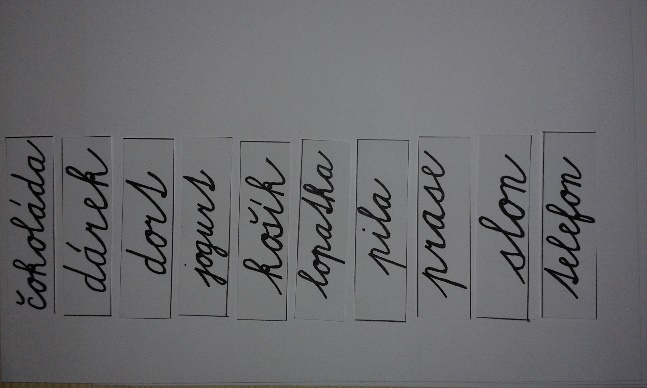 čokoláda
dárek
dort
jogurt
košík
lopatka
pila
prase
slon
telefon